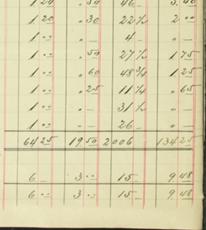 1 20 " 50 46 — 3.40
1 20 " 30 22 ½ 2 00
1 " " — 4 — " —
1 " " 50 27 ½ 1 75
1 " " 60 48 ¾ 1 25
1 " " 25 11 ¼ " 65
1 " " — 31 ½ " —
1 " " — 26 — " —
64 25 19 50 2006 134 25
6 — 3 " 15 — 9 48
6 " 3 " 15 — 9 48